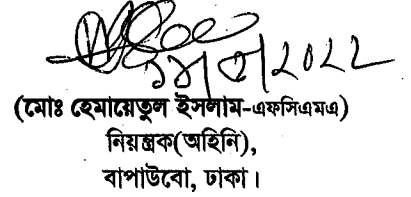 ২০২২
(মোঃ হেমায়েতুল ইসলাম-এফসিএমএ)
নিয়ন্ত্রক(অহিনি),
বাপাউবো, ঢাকা।